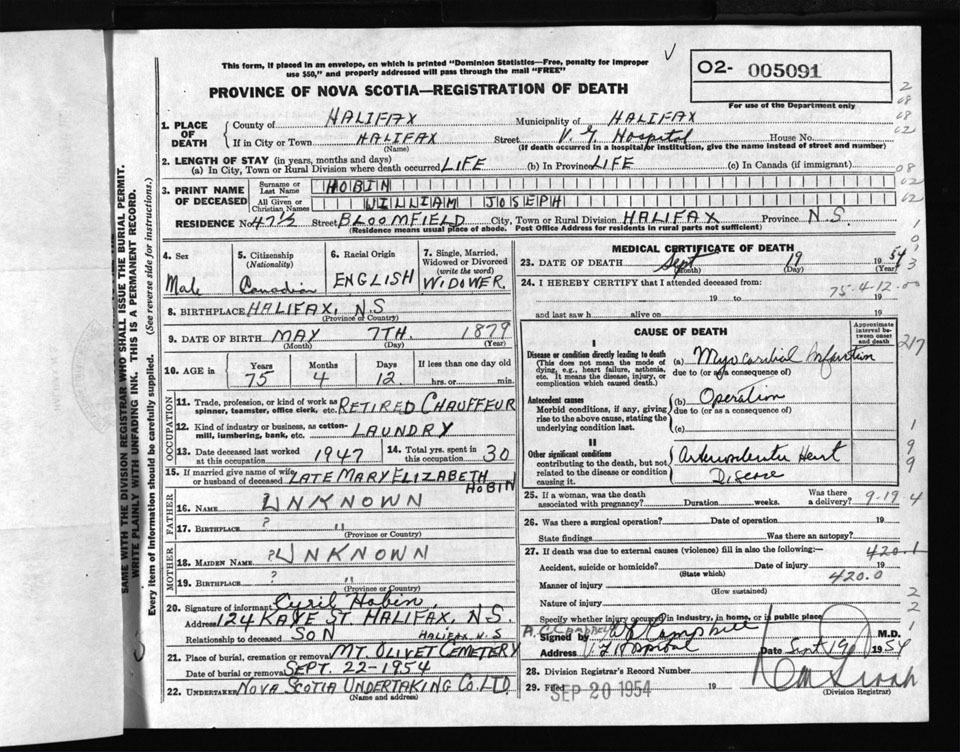 This form, if placed in an envelope, on which is printed "Dominion Statistics—Free, penalty for improper
use $50," and properly addressed will pass through the mail "FREE"
02- 005091
For use of the Department only
PROVINCE OF NOVA SCOTIA—REGISTRATION OF DEATH
SAME WITH THE DIVISION REGISTRAR WHO SHALL ISSUE THE BURIAL PERMIT.
WRITE PLAINLY WITH UNFADING INK. THIS IS A PERMANENT RECORD.
Every item of information should be carefully supplied. (See reverse side for instructions.)
1. PLACE OF DEATH
County of HALIFAX Municipality of HALIFAX
If in City or Town HALIFAX Street V. G. Hospital House No.
(Name) (If death occurred in a hospital or institution, give the name instead of street and number)
2. LENGTH OF STAY (in years, months and days)
(a) In City, Town or Rural Division where death occurred LIFE (b) In Province LIFE (c) In Canada (if immigrant)
3. PRINT NAME OF DECEASED
Surname or Last Name HOBIN
All Given or Christian Names WILLIAM JOSEPH
RESIDENCE No. 47½ Street BLOOMFIELD City, Town or Rural Division HALIFAX Province N.S
(Residence means usual place of abode. Post Office Address for residents in rural parts not sufficient)
4. Sex
Male
5. Citizenship
(Nationality)
Canadian
6. Racial Origin
ENGLISH
7. Single, Married,
Widowed or Divorced
(write the word)
WIDOWER.
8. BIRTHPLACE HALIFAX, N.S
(Province or Country)
9. DATE OF BIRTH MAY 7TH. 1879
(Month) (Day) (Year)
10. AGE in
Years Months Days If less than one day old
75 4 12 hrs. or min.
OCCUPATION
11. Trade, profession, or kind of work as
spinner, teamster, office clerk, etc. RETIRED CHAUFFEUR
12. Kind of industry or business, as cotton-
mill, lumbering, bank, etc. LAUNDRY
13. Date deceased last worked
at this occupation 1947
14. Total yrs. spent in
this occupation 30
15. If married give name of wife
or husband of deceased LATE MARY ELIZABETH
HOBIN
FATHER
16. NAME UNKNOWN
17. BIRTHPLACE ? "
(Province or Country)
MOTHER
18. MAIDEN NAME ? UNKNOWN
19. BIRTHPLACE ? "
(Province or Country)
20. Signature of informant Cyril Hobin,
Address 124 KAYE ST. HALIFAX, N.S.
Relationship to deceased SON
HALIFAX. N. S
21. Place of burial, cremation or removal MT. OLIVET CEMETERY
Date of burial or removal SEPT. 22-1954
22. UNDERTAKER NOVA SCOTIA UNDERTAKING CO. LTD.
(Name and address)
MEDICAL CERTIFICATE OF DEATH
23. DATE OF DEATH Sept 19 1954
(Month) (Day) (Year)
24. I HEREBY CERTIFY that I attended deceased from:
75-4-12.00
19 to 19
and last saw h alive on 19
CAUSE OF DEATH
Approximate
interval between
cause
and death
I
Disease or condition directly leading to death
(This does not mean the mode of
dying, e.g., heart failure, asthenia,
etc. It means the disease, injury, or
complication which caused death.)
(a) Myocardial Infarction
due to (or as a consequence of)
Antecedent causes
Morbid conditions, if any, giving
rise to the above cause, stating the
underlying condition last.
(b) Operation
due to (or as a consequence of)
(c)
II
Other significant conditions
contributing to the death, but not
related to the disease or condition
causing it.
Arteriosclerotic Heart
Disease
217
25. If a woman, was the death
associated with pregnancy? Duration weeks. Was there
a delivery? 9-19 4
26. Was there a surgical operation? Date of operation 19
State findings Was there an autopsy?
27. If death was due to external causes (violence) fill in also the following:—
420.1
Accident, suicide or homicide? Date of injury 19
(State which)
420.0
Manner of injury
(How sustained)
Nature of injury
Specify whether injury occurred in industry, in home, or in public place
A. C. Campbell
Signed by Campbell M.D.
V G Hospital Date Sept 19 1954
28. Division Registrar's Record Number
29. Filed SEP 20 1954 19
(Division Registrar)